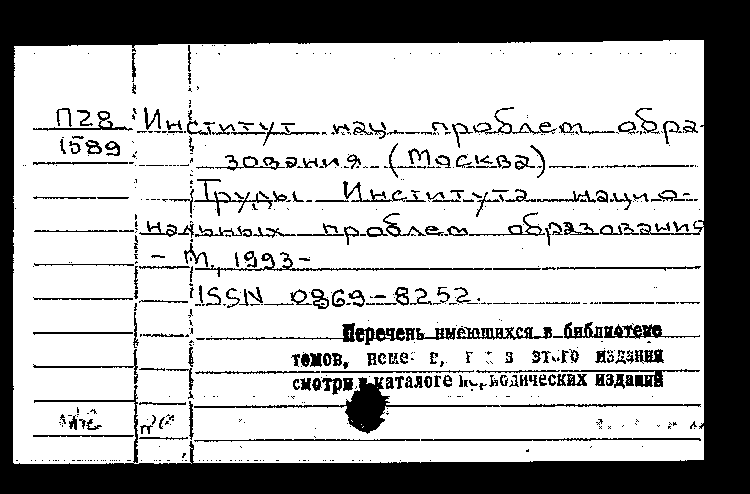 П28 Институт нац. проблем обра-
1589 зования (Москва)
Труды Института нацио-
нальных проблем образования
- М., 1993-
ISSN 0869-8252.
Перечень имеющихся в библиотеке
томов, этого издания
смотри в каталоге периодических изданий